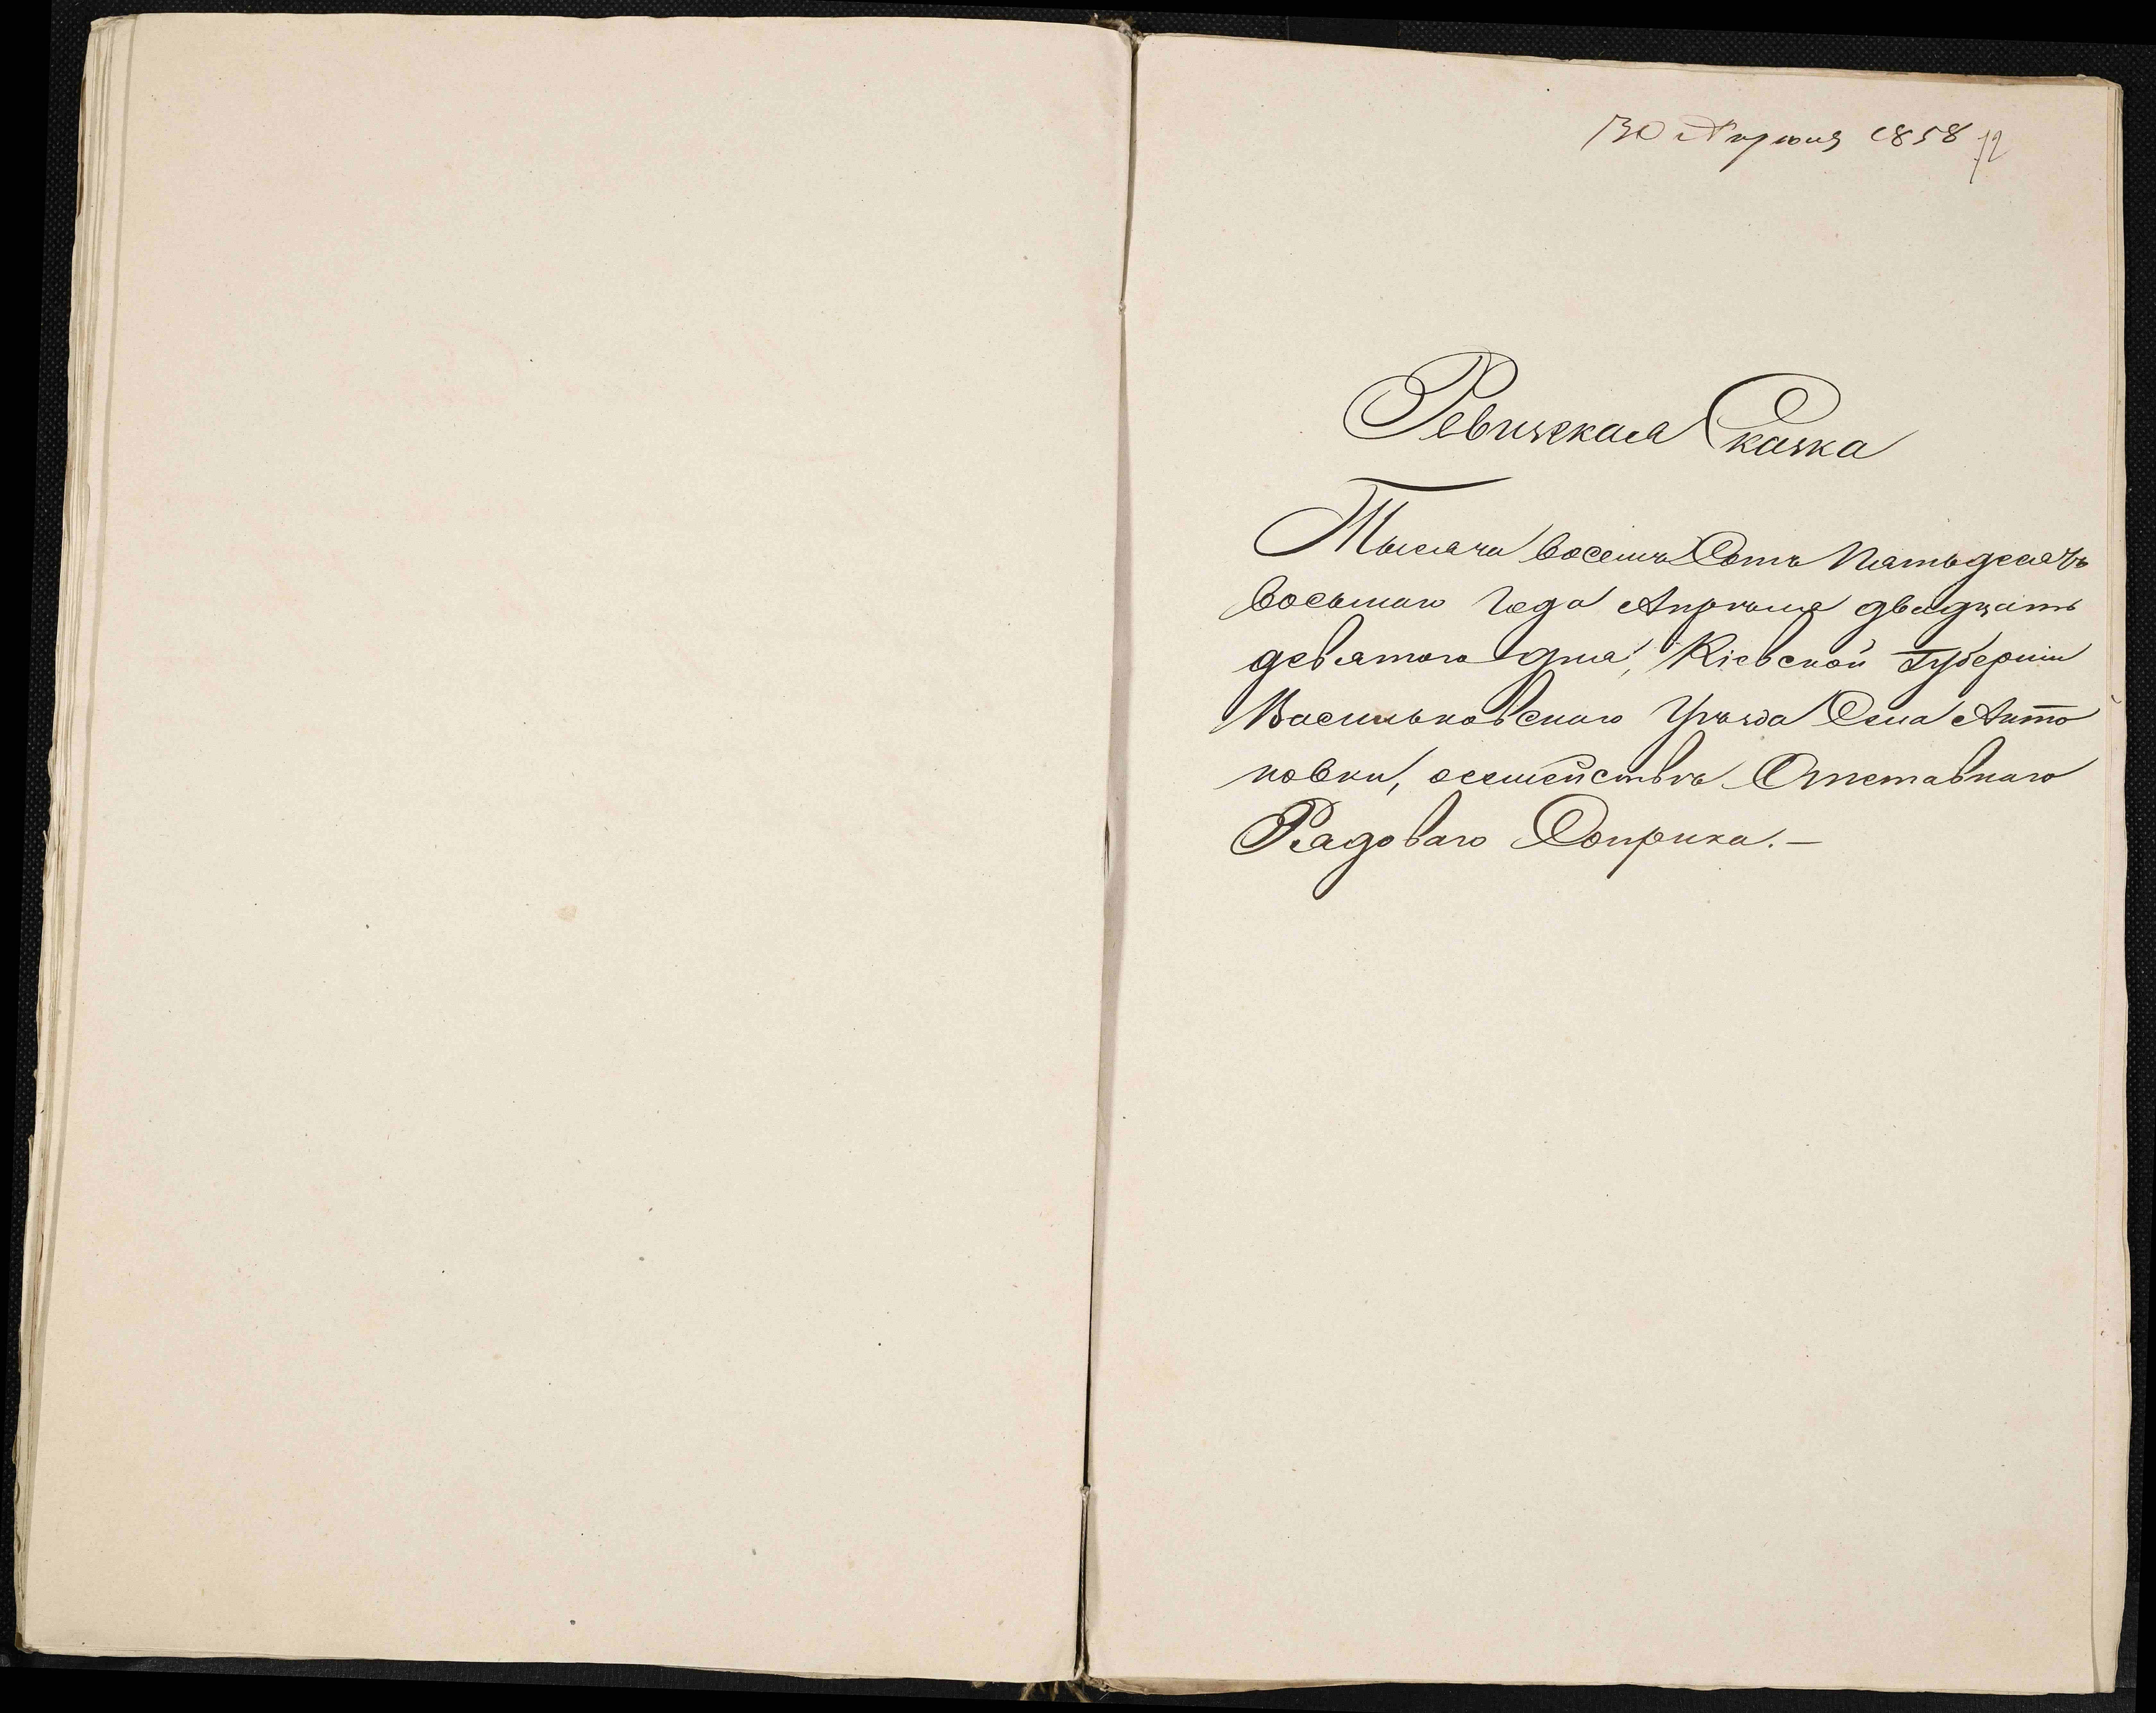 30 Апрѣля 1858 72
Ревизская Сказка
Тысяча восемъ Сотъ Пятьдесятъ
восьмаго Года Апрѣля двадцать
девятаго дня, Кіевской Губерніи
Васильковскаго Уѣзда Села Анто
новки, осемействѣ Отставнаго
Рядоваго Сопрука.—